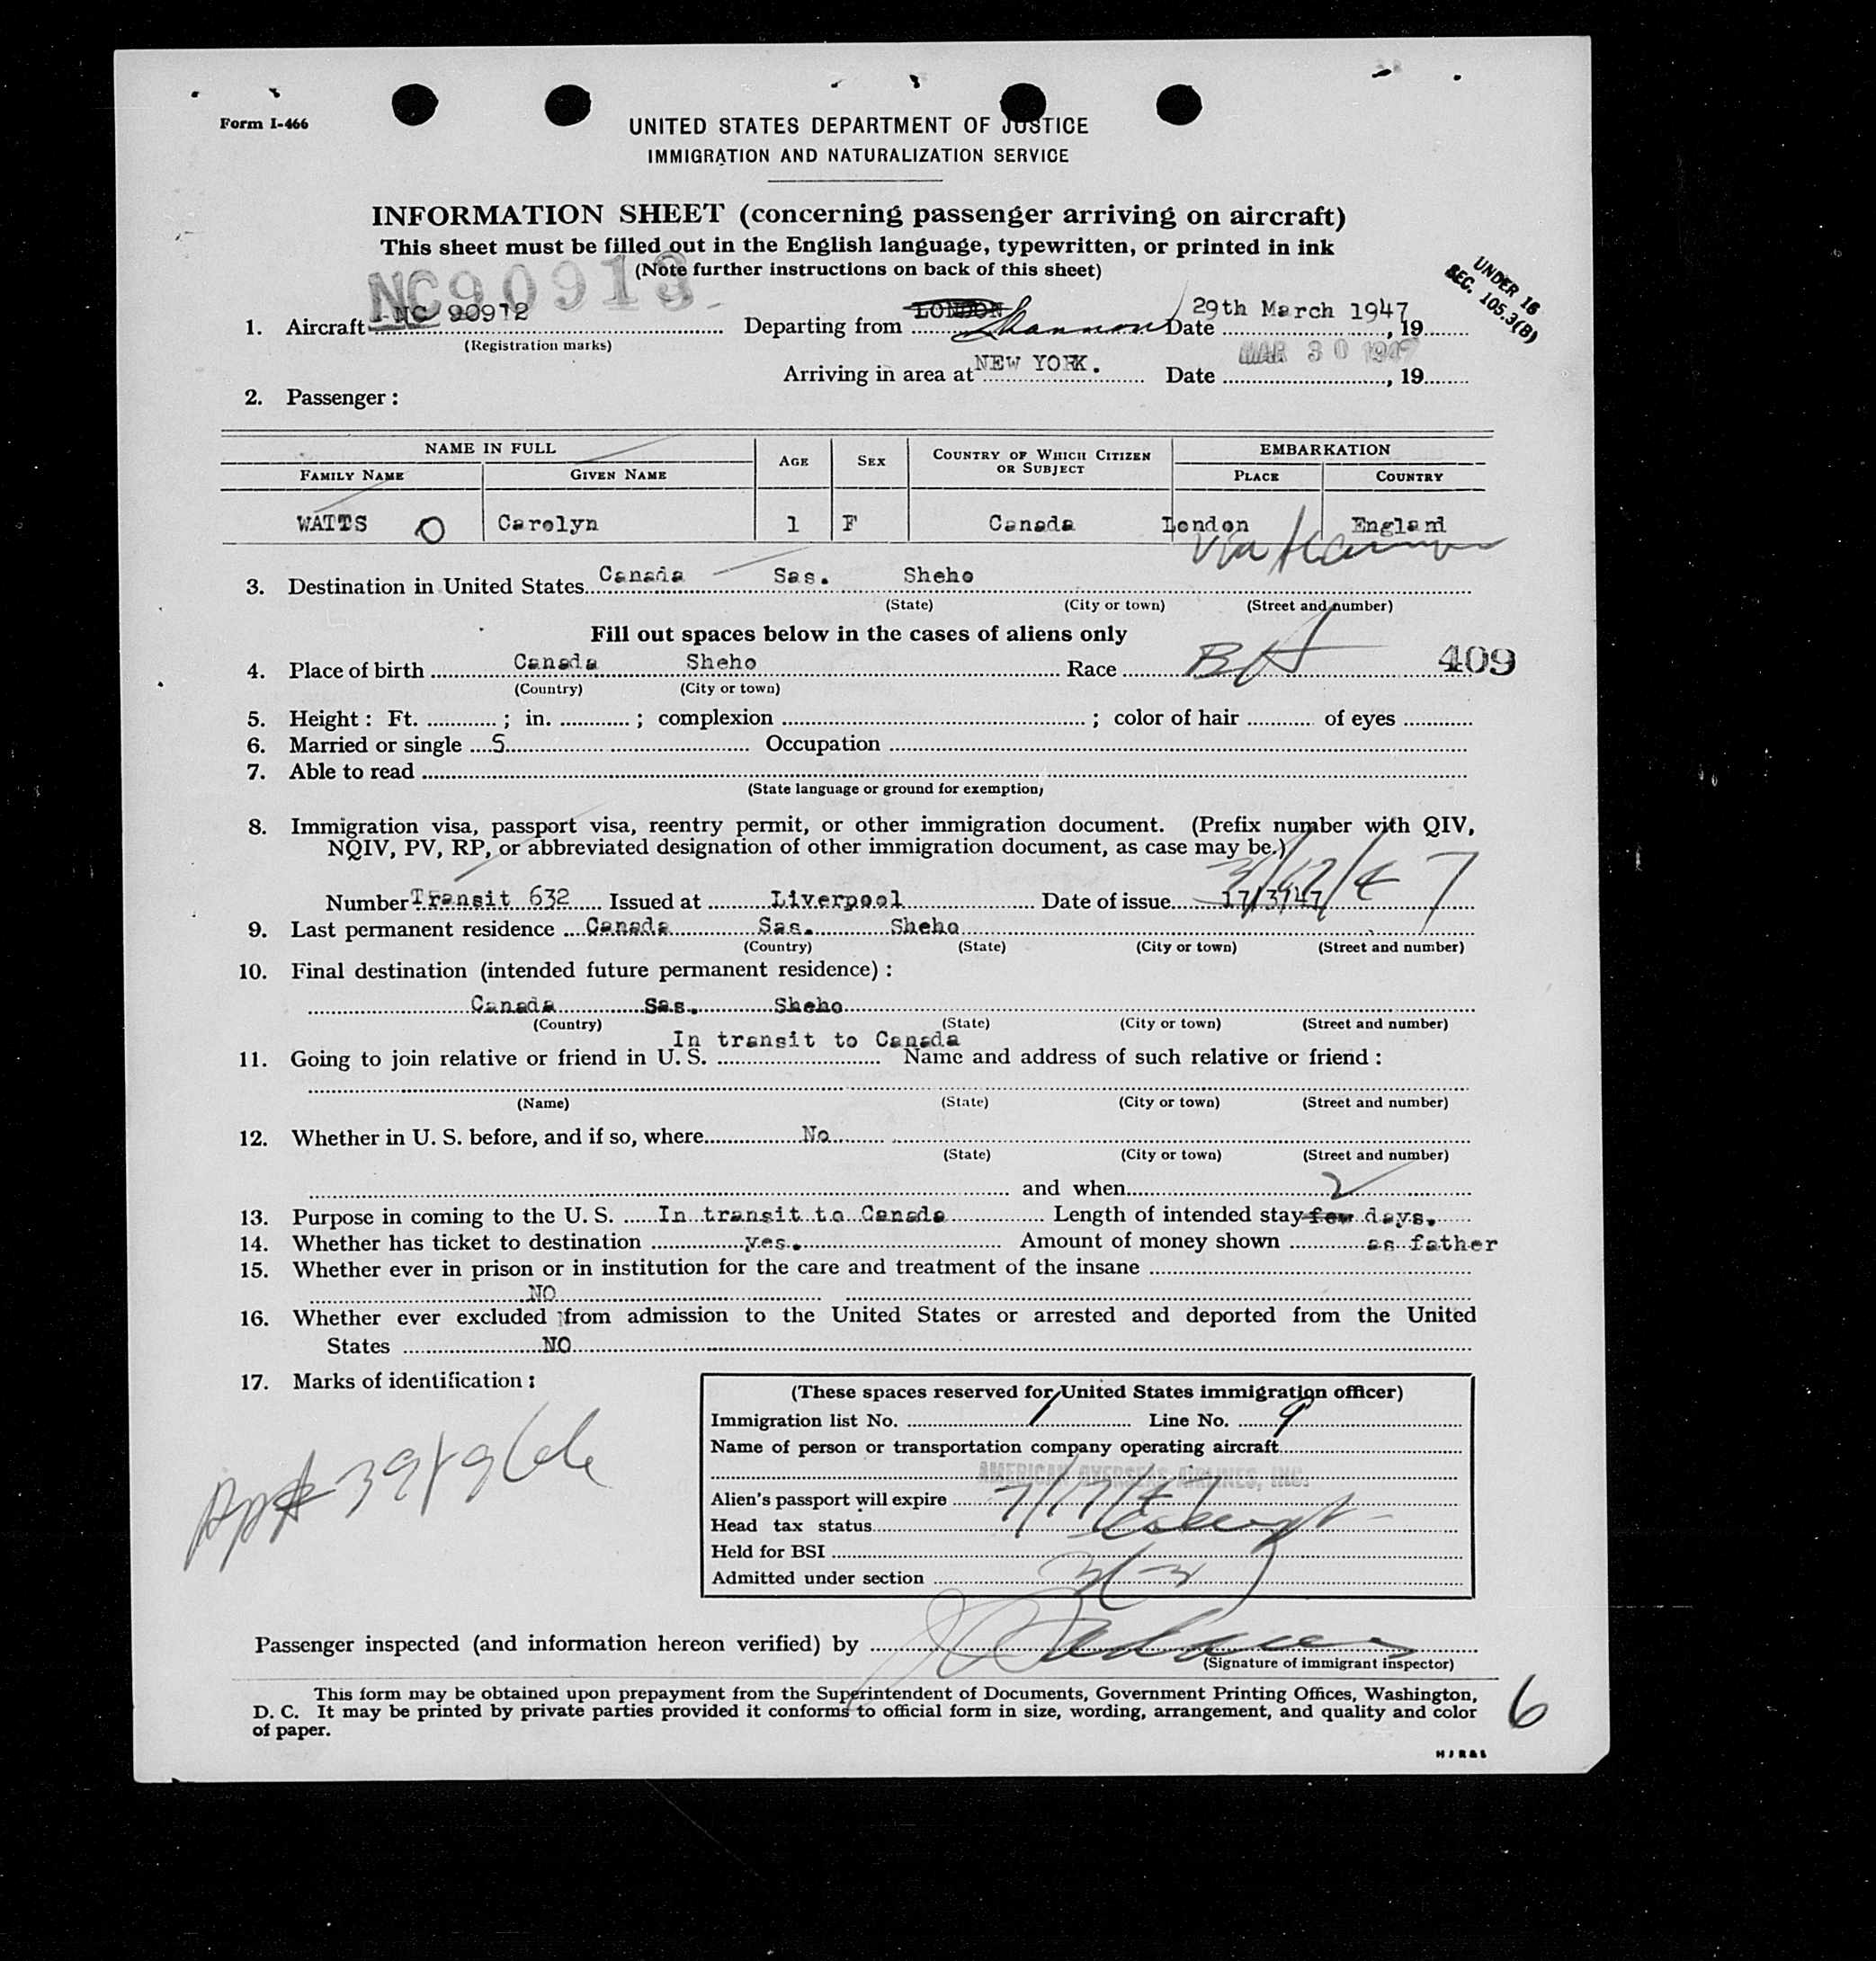 Form I-466
UNITED STATES DEPARTMENT OF JUSTICE
IMMIGRATION AND NATURALIZATION SERVICE
INFORMATION SHEET (concerning passenger arriving on aircraft)
This sheet must be filled out in the English language, typewritten, or printed in ink
(Note further instructions on back of this sheet)
NC90913
UNDER 16
SEC. 105.3(B)
1. Aircraft NC 90912 Departing from LONDON Shannon Date 29th March 1947, 19
(Registration marks)
Arriving in area at NEW YORK. Date MAR 30 1947, 19
2. Passenger:
NAME IN FULL AGE SEX COUNTRY OF WHICH CITIZEN OR SUBJECT EMBARKATION
FAMILY NAME GIVEN NAME PLACE COUNTRY
WATTS O Carolyn 1 F Canada London England
via Shannon
3. Destination in United States Canada Sas. Sheho
(State) (City or town) (Street and number)
Fill out spaces below in the cases of aliens only
4. Place of birth Canada Sheho Race 409
(Country) (City or town)
5. Height: Ft. ; in. ; complexion ; color of hair of eyes
6. Married or single S Occupation
7. Able to read
(State language or ground for exemption)
8. Immigration visa, passport visa, reentry permit, or other immigration document. (Prefix number with QIV,
NQIV, PV, RP, or abbreviated designation of other immigration document, as case may be.)
3/17/47
Number Transit 632 Issued at Liverpool Date of issue 17/3/47
9. Last permanent residence Canada Sas. Sheho
(Country) (State) (City or town) (Street and number)
10. Final destination (intended future permanent residence):
Canada Sas. Sheho
(Country) (State) (City or town) (Street and number)
In transit to Canada
11. Going to join relative or friend in U. S. Name and address of such relative or friend:
(Name) (State) (City or town) (Street and number)
12. Whether in U. S. before, and if so, where No
(State) (City or town) (Street and number)
and when 2
13. Purpose in coming to the U. S. In transit to Canada Length of intended stay few days.
14. Whether has ticket to destination yes. Amount of money shown as father
15. Whether ever in prison or in institution for the care and treatment of the insane
NO
16. Whether ever excluded from admission to the United States or arrested and deported from the United
States NO
17. Marks of identification:
(These spaces reserved for United States immigration officer)
Immigration list No. 1 Line No. 9
Name of person or transportation company operating aircraft
AMERICAN OVERSEAS AIRLINES, INC.
Alien's passport will expire
Head tax status
Held for BSI
Admitted under section
Passenger inspected (and information hereon verified) by
(Signature of immigrant inspector)
This form may be obtained upon prepayment from the Superintendent of Documents, Government Printing Offices, Washington,
D. C. It may be printed by private parties provided it conforms to official form in size, wording, arrangement, and quality and color
of paper.
6